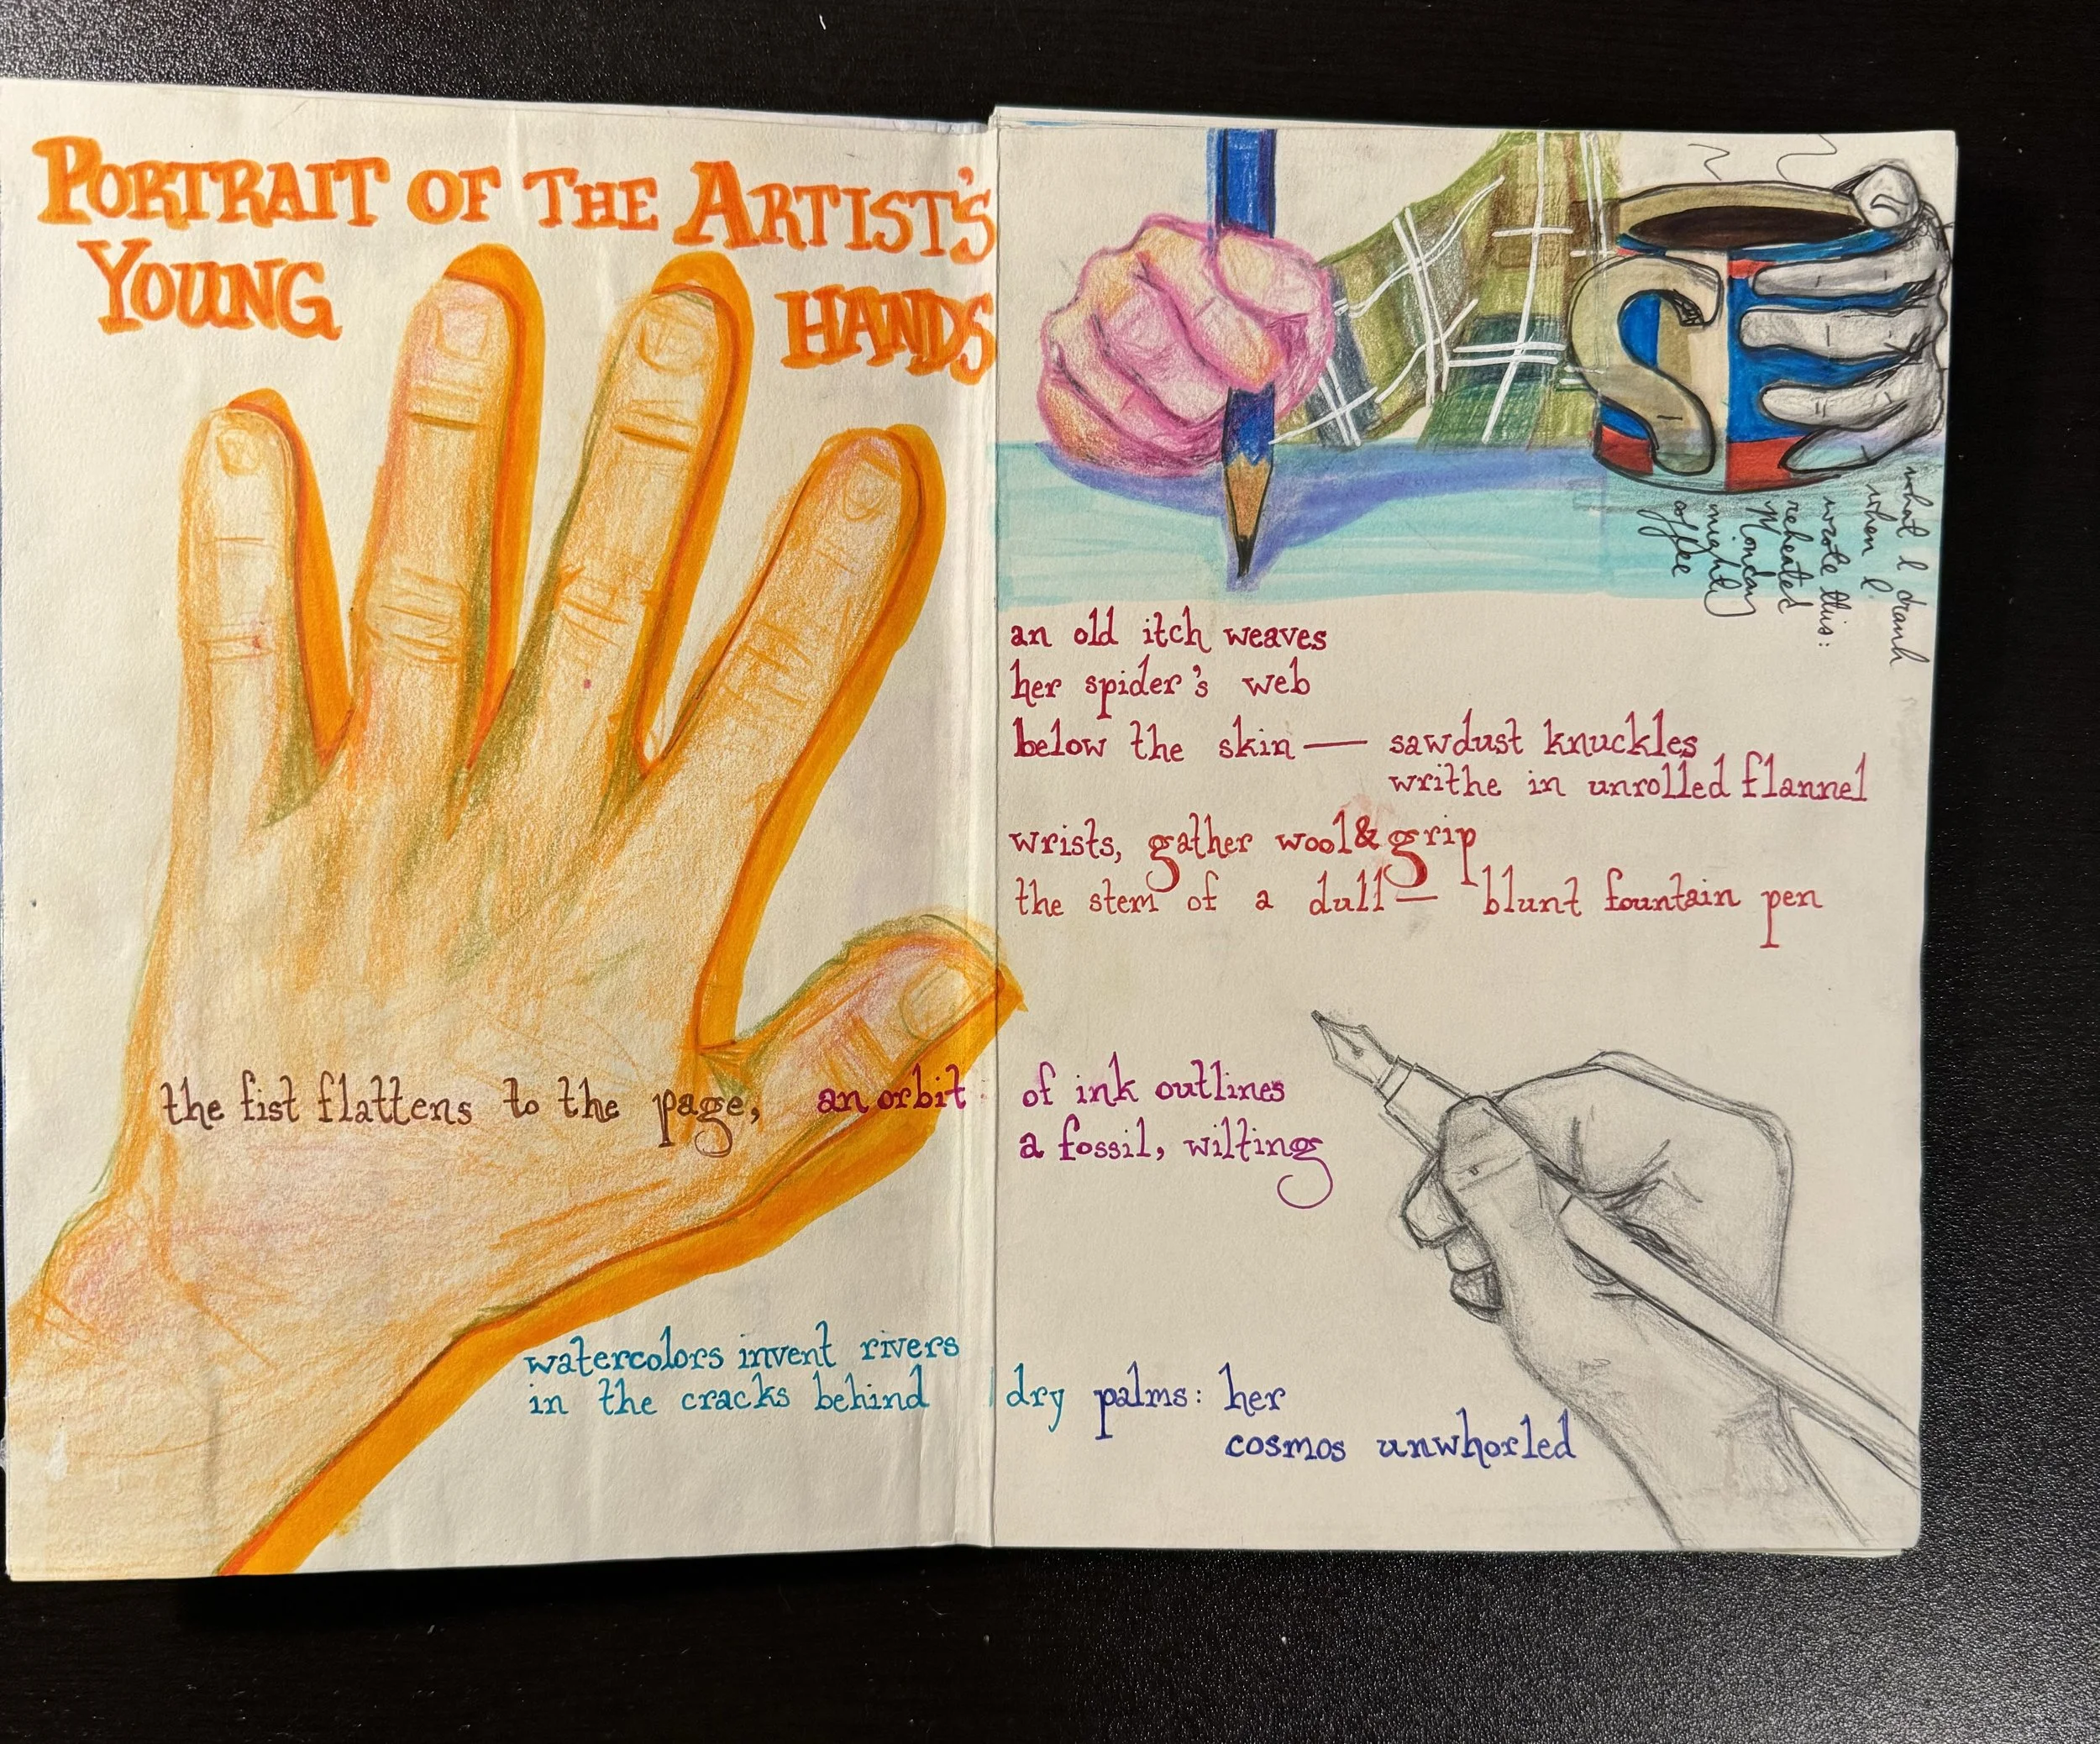 PORTRAIT OF THE ARTIST'S
YOUNG HANDS
S
what I drank
when I
wrote this:
reheated
Monday
nightly
coffee
an old itch weaves
her spider's web
below the skin — sawdust knuckles
writhe in unrolled flannel
wrists, gather wool & grip
the stem of a dull — blunt fountain pen
the fist flattens to the page, an orbit of ink outlines
a fossil, wilting
watercolors invent rivers
in the cracks behind dry palms: her
cosmos unwhorled